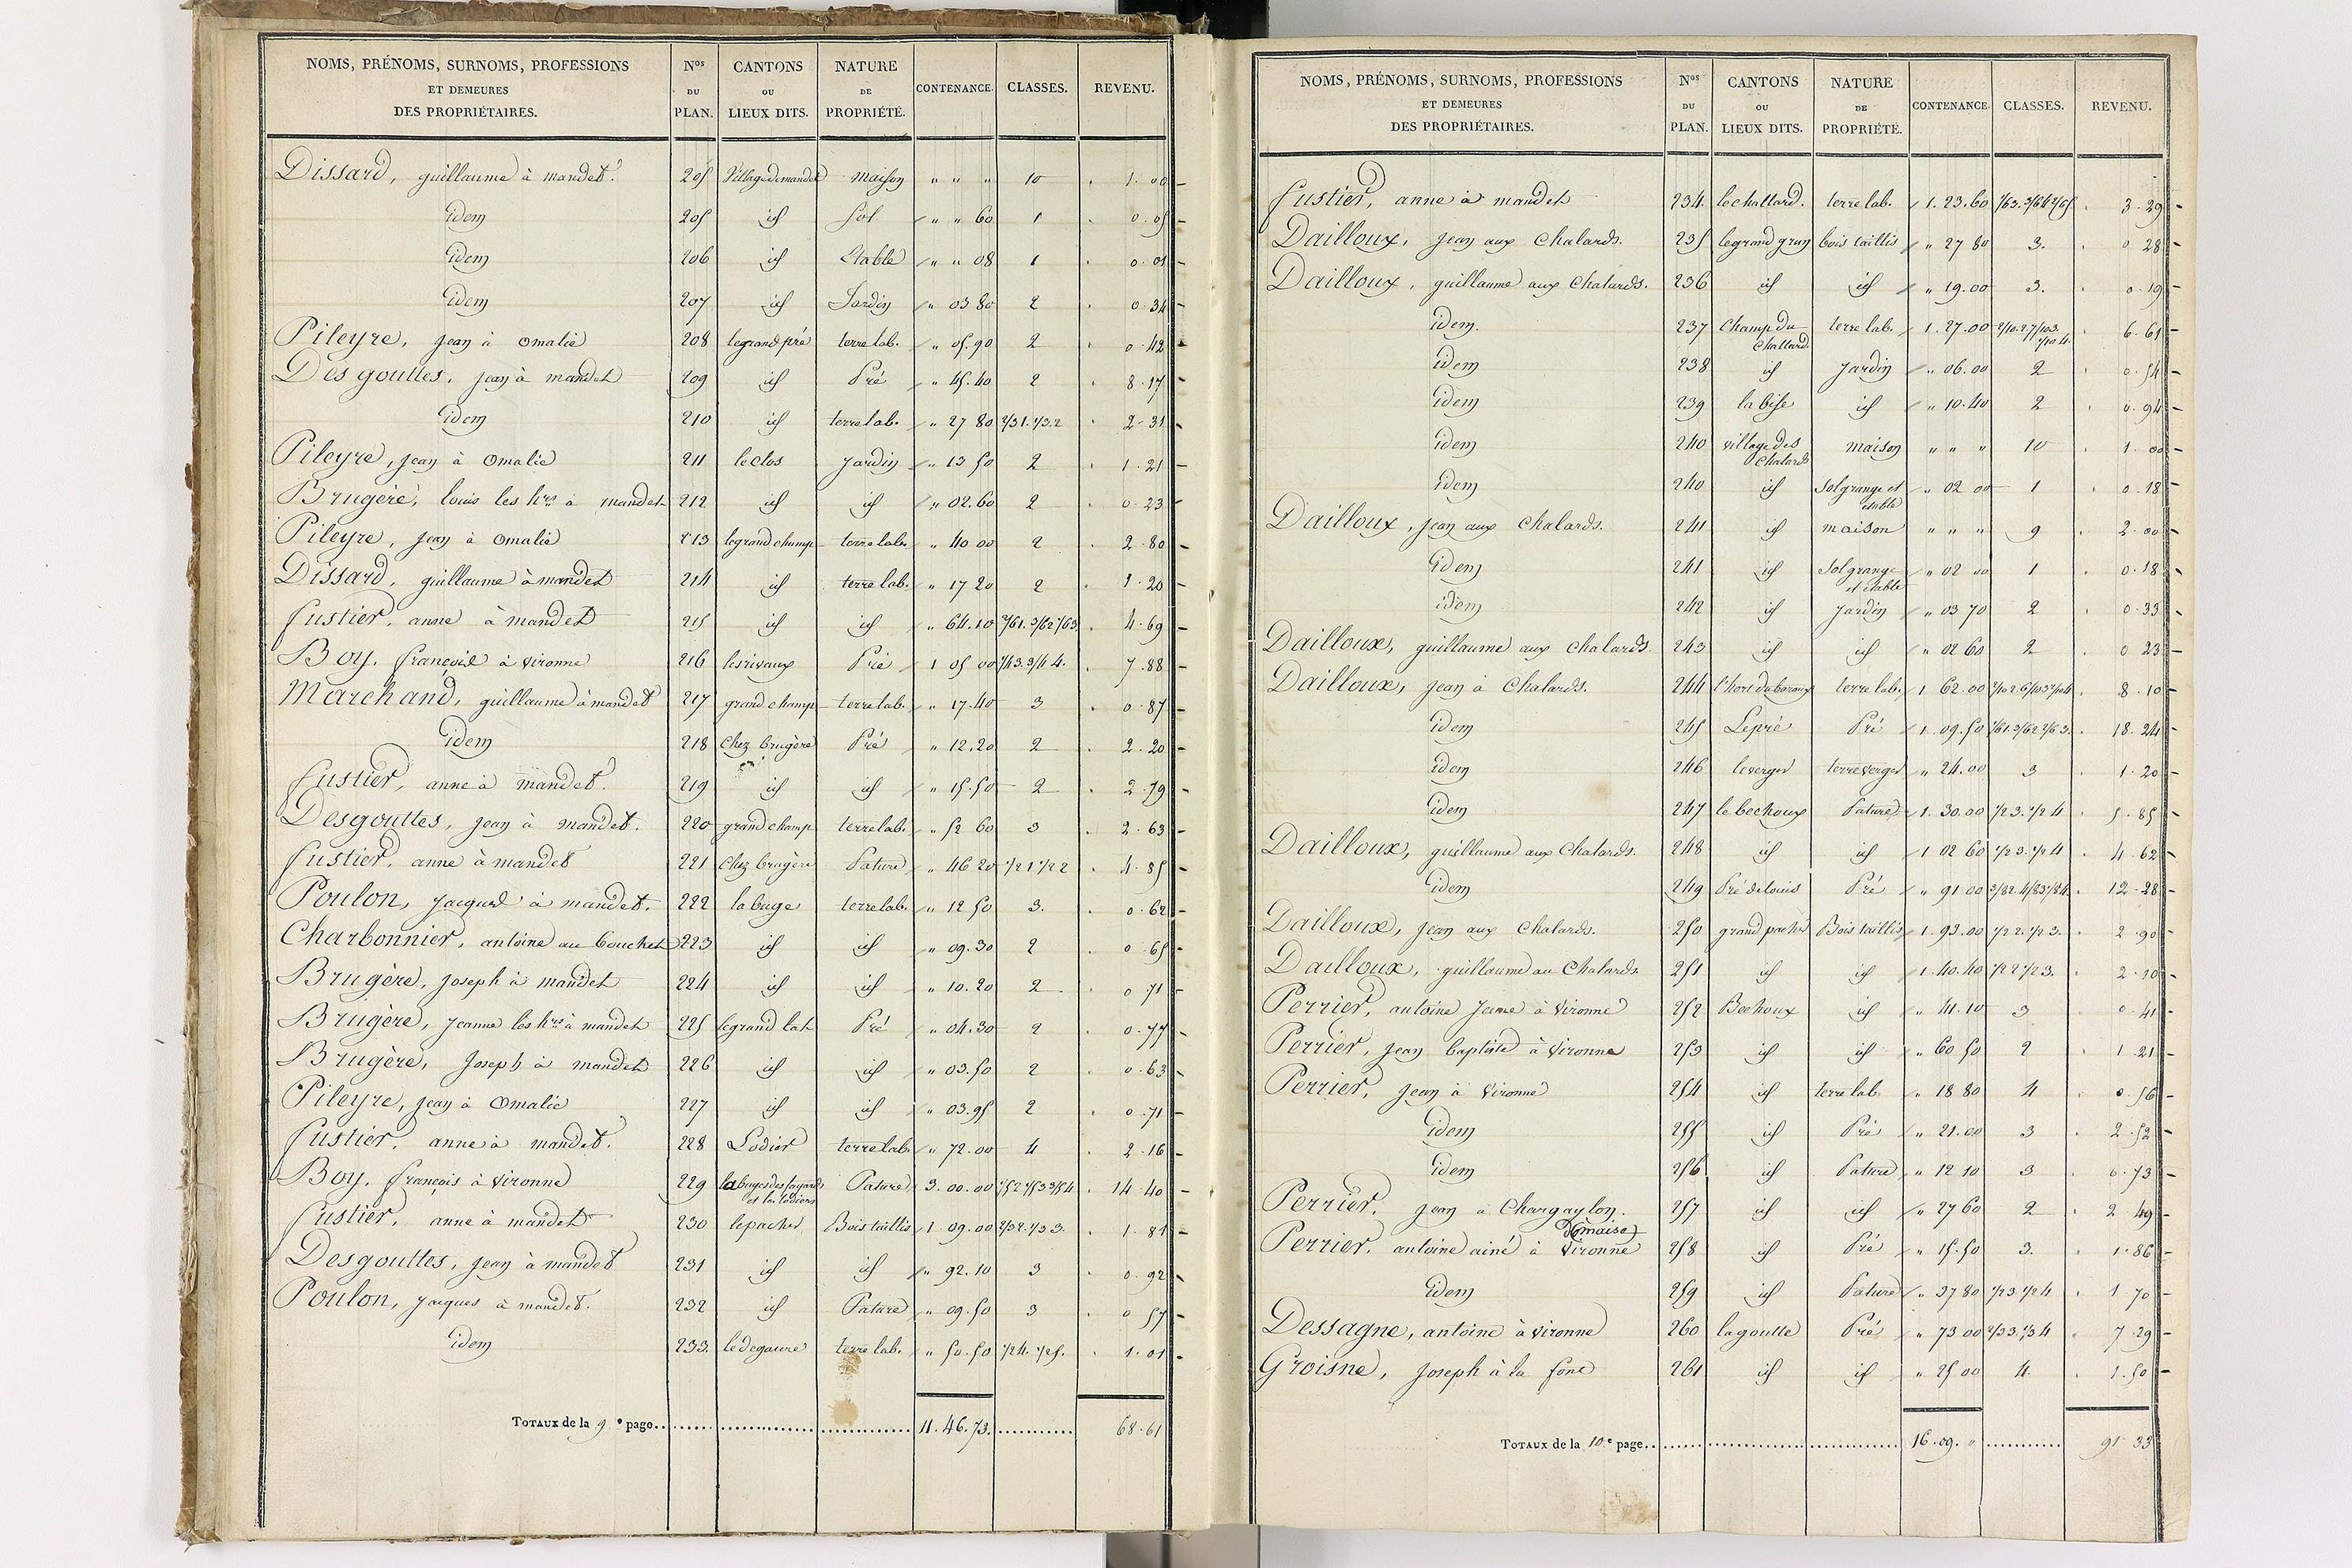 NOMS, PRÉNOMS, SURNOMS, PROFESSIONS
ET DEMEURES
DES PROPRIÉTAIRES.
Nos DU PLAN.
CANTONS OU LIEUX DITS.
NATURE DE PROPRIÉTÉ.
CONTENANCE.
CLASSES.
REVENU.
Dissard, guillaume à mandet. 205 Village de mandet maison " " " 10 1.00
idem 205 id Sol " " 60 1 0.05
idem 206 id Etable " " 08 1 0.01
idem 207 id Jardin " 03 80 2 0.34
Pileyre, jean à Omalie 208 le grand pré terre lab. " 05.90 2 0.42
Des gouttes, jean à mandet 209 id Pré " 45.40 2 8.17
idem 210 id terre lab. " 27 80 2/3 1. 1/3. 2 2.31
Pileyre, jean à Omalie 211 le clos jardin " 13 50 2 1.21
Brugère, louis les hrs à mandet 212 id id " 02.60 2 0.23
Pileyre, jean à Omalie 213 le grand champ terre lab. " 40 00 2 2.80
Dissard, guillaume à mandet 214 id terre lab. " 17 20 2 1.20
fustier, anne à mandet 215 id id " 64.10 2/6 1. 3/6 2 1/6 3. 4.69
Boy, françois à vironne 216 les rivaux Pré 1 05 00 1/4 3. 3/4 4. 7.88
Marchand, guillaume à mandet 217 grand champ terre lab. " 17.40 3 0.87
idem 218 chez brugère Pré " 12.20 2 2.20
fustier, anne à mandet. 219 id id " 15.50 2 2.79
Desgouttes, jean à mandet. 220 grand champ terre lab. " 52 60 3 2.63
fustier, anne à mandet 221 chez brugère Pature " 46 20 1/2 1 1/2 2 4.85
Poulon, jacques à mandet. 222 la buge terre lab. " 12 50 3. 0.62
Charbonnier, antoine au bouchet 223 id id " 09.30 2 0.65
Brugère, joseph à mandet 224 id id " 10.20 2 0.71
Brugère, jeanne les hrs à mandet 225 le grand lat Pré " 04.30 2 0.77
Brugère, Joseph à mandet 226 id id " 03.50 2 0.63
Pileyre, jean à Omalie 227 id id " 03.95 2 0.71
fustier, anne à mandet. 228 Lodier terre lab. " 72.00 4 2.16
Boy, françois à vironne 229 la buges des fayards et les lodiers Pature 3.00.00 1/5 2 1/5 3 3/5 4 14.40
fustier, anne à mandet 230 le pacher Bois taillis 1 09.00 2/3 2. 1/3 3. 1.81
Desgouttes, jean à mandet 231 id id " 92.10 3 0.92
Poulon, jaques à mandet. 232 id Pature " 09.50 3 0 57
idem 233. le degaure terre lab. " 50.50 1/2 4. 1/2 5. 1.01
TOTAUX de la 9e page 11.46.73. 68.61
NOMS, PRÉNOMS, SURNOMS, PROFESSIONS
ET DEMEURES
DES PROPRIÉTAIRES.
Nos DU PLAN.
CANTONS OU LIEUX DITS.
NATURE DE PROPRIÉTÉ.
CONTENANCE.
CLASSES.
REVENU.
fustier, anne à mandet 234. le challard. terre lab. 1.23.60 1/6 3. 3/6 4 2/6 5 3.29
Dailloux, jean aux chalards. 235 le grand bois taillis " 27 80 3. 0 28
Dailloux, guillaume aux chalards. 236 id id " 19.00 3. 0.19
idem. 237 champ du challard. terre lab. 1.27.00 6.61
idem 238 id jardin " 06.00 2 0.54
idem 239 la bise id " 10.40 2 0.94
idem 240 village des chalards maison " " " 10 1.00
idem 240 id sol grange et étable " 02 00 1 0.18
Dailloux, jean aux chalards. 241 id maison " " " 9 2.00
idem 241 id sol grange et étable " 02 00 1 0.18
idem 242 id jardin " 03 70 2 0.33
Dailloux, guillaume aux chalards. 243 id id " 02 60 2 0 23
Dailloux, jean à chalards. 244 terre lab. 1 62.00 8.10
idem 245 Le pré Pré 1.09.50 1/6 1. 3/6 2 2/6 3. 18.24
idem 246 le verger terre verger " 24.00 3 1.20
idem 247 le bechoux Pature 1.30.00 1/2 3. 1/2 4 5.85
Dailloux, guillaume aux chalards. 248 id id 1 02 60 1/2 3. 1/2 4 4.62
idem 249 Pré de louis Pré " 91.00 3/8 2. 4/8 3 1/8 4. 12.28
Dailloux, jean aux chalards. 250 grand pacher Bois taillis 1.93.00 1/2 2. 1/2 3. 2.90
Dailloux, guillaume au chalards. 251 id id 1.40.40 1/2 2 1/2 3. 2.10
Perrier, antoine jeune à vironne 252 Bechoux id " 41.10 3 0.41
Perrier, jean baptiste à vironne 253 id id " 60 50 2 1.21
Perrier, jean à vironne 254 id terre lab. " 18 80 4 0.56
idem 255 id Pré " 21.00 3 2.52
idem 256 id Pature " 12 10 3 0.73
Perrier, jean à chargaylon. 257 id id " 27 60 2 2.49
domaise
Perrier, antoine ainé à vironne 258 id Pré " 15.50 3. 1.86
idem 259 id Pature " 37 80 1/2 3. 1/2 4 1.70
Dessagne, antoine à vironne 260 la goutte Pré " 73 00 2/3 3. 1/3 4 7.29
Groisne, joseph à la font 261 id id " 25 00 4. 1.50
TOTAUX de la 10e page 16.09. " 91 33